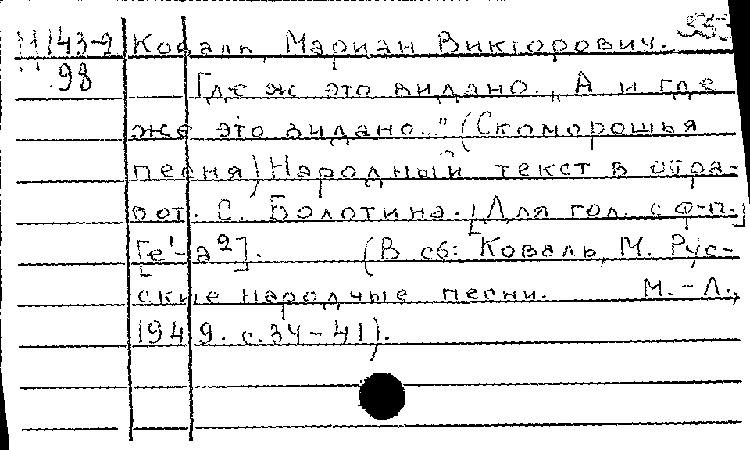 М 143-9 Коваль, Мариан Викторович.
98 Где ж это видано. „А и где
же это видано..." (Скоморошья
песня) Народный текст в обра-
бот. С. Болотина. [Для гол. с ф-п.]
[e¹-a²]. (В сб: Коваль, М. Рус-
ские народные песни. М.-Л.,
1949. с.34-41).